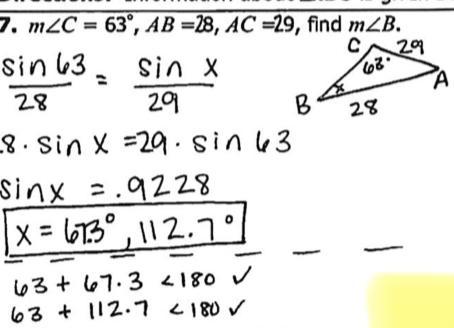 7. m∠C = 63°, AB =28, AC =29, find m∠B.
sin 63 / 28 = sin x / 29
C 29
63°
A
B x 28
8 · sin x = 29 · sin 63
sinx = .9228
x = 67.3°, 112.7°
63 + 67.3 < 180 ✓
63 + 112.7 < 180 ✓